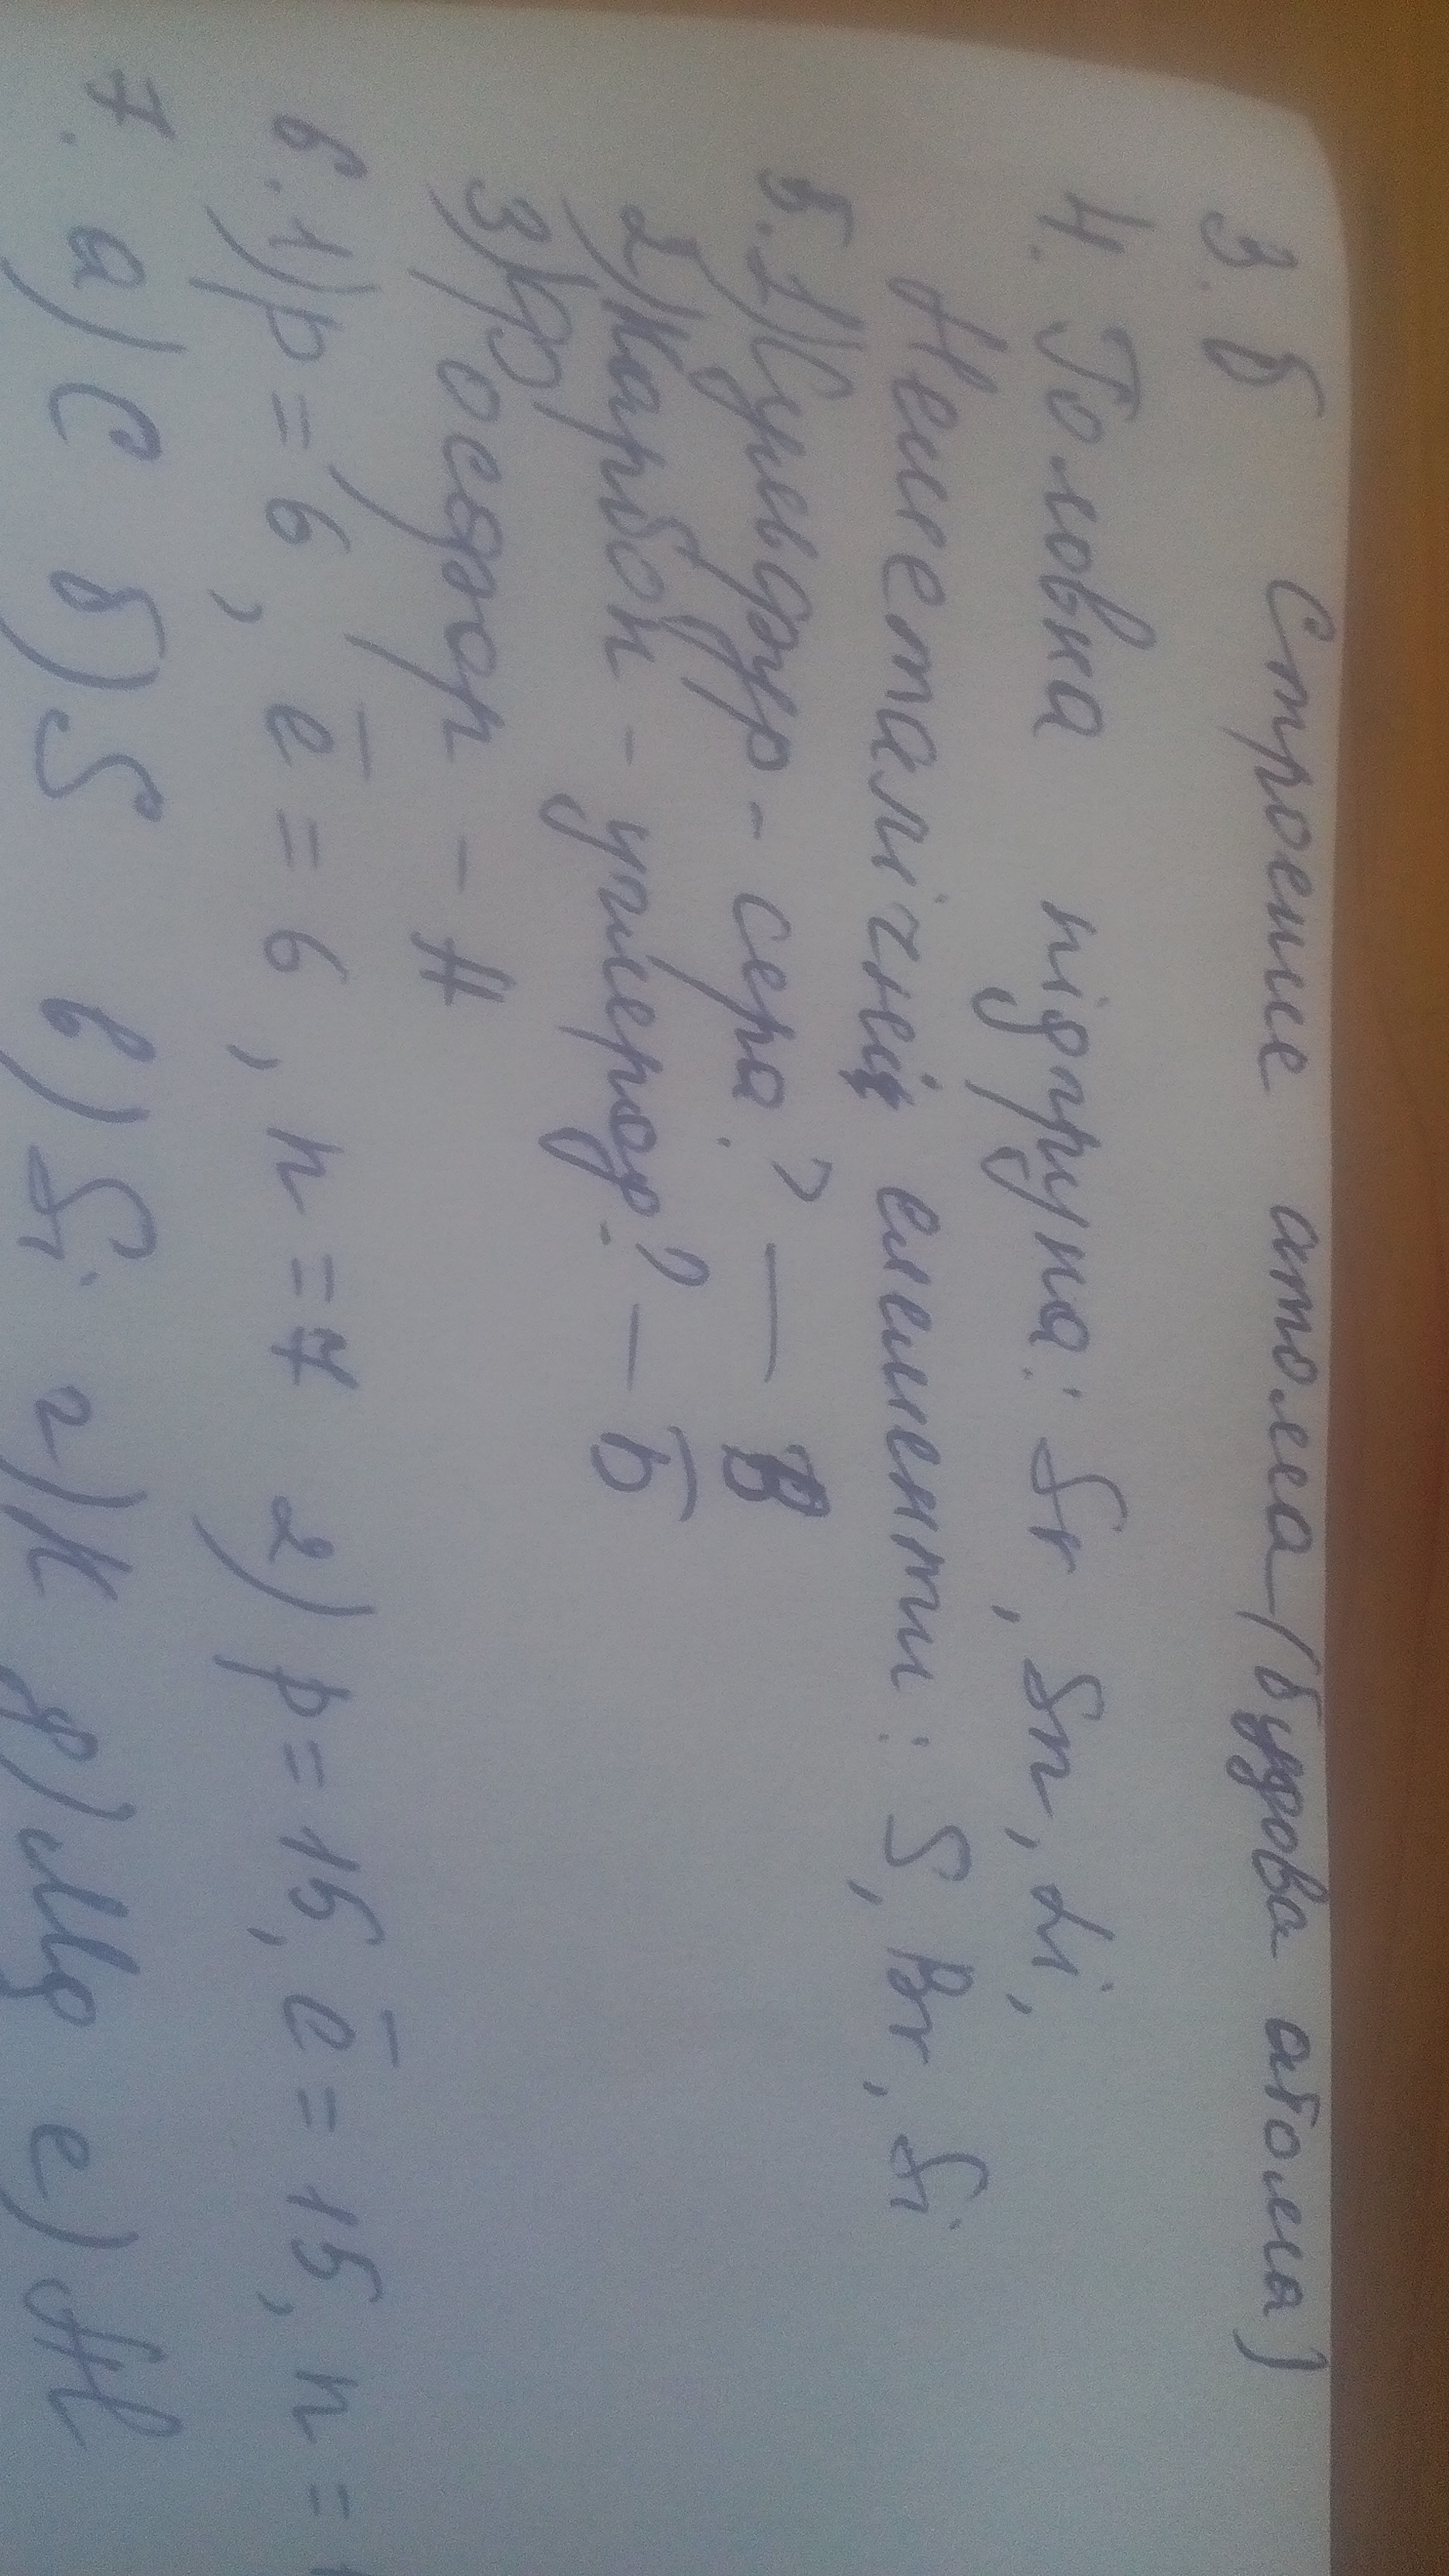 3. б Строение атома (будова атома)
4. Головна підгрупа: Sr, Sn, Li,
Неметалічні елементи: S, Br, Si
5. 1) Сульфур - сера? — В
2) Карбон - углерод? — Б
3) Фосфор - А
6. 1) p = 6, e̅ = 6, n = 7 2) p = 15, e̅ = 15, n =
7. а) C б) S в) Si г) K д) Mg е) Al